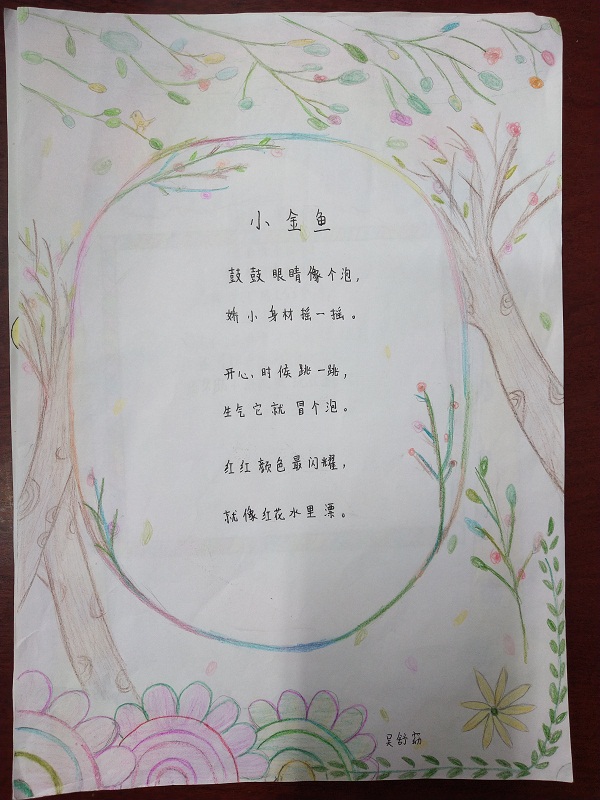 小金鱼
鼓鼓眼睛像个泡，
娇小身材摇一摇。
开心时候跳一跳，
生气它就冒个泡。
红红颜色最闪耀，
就像红花水里漂。
吴舒